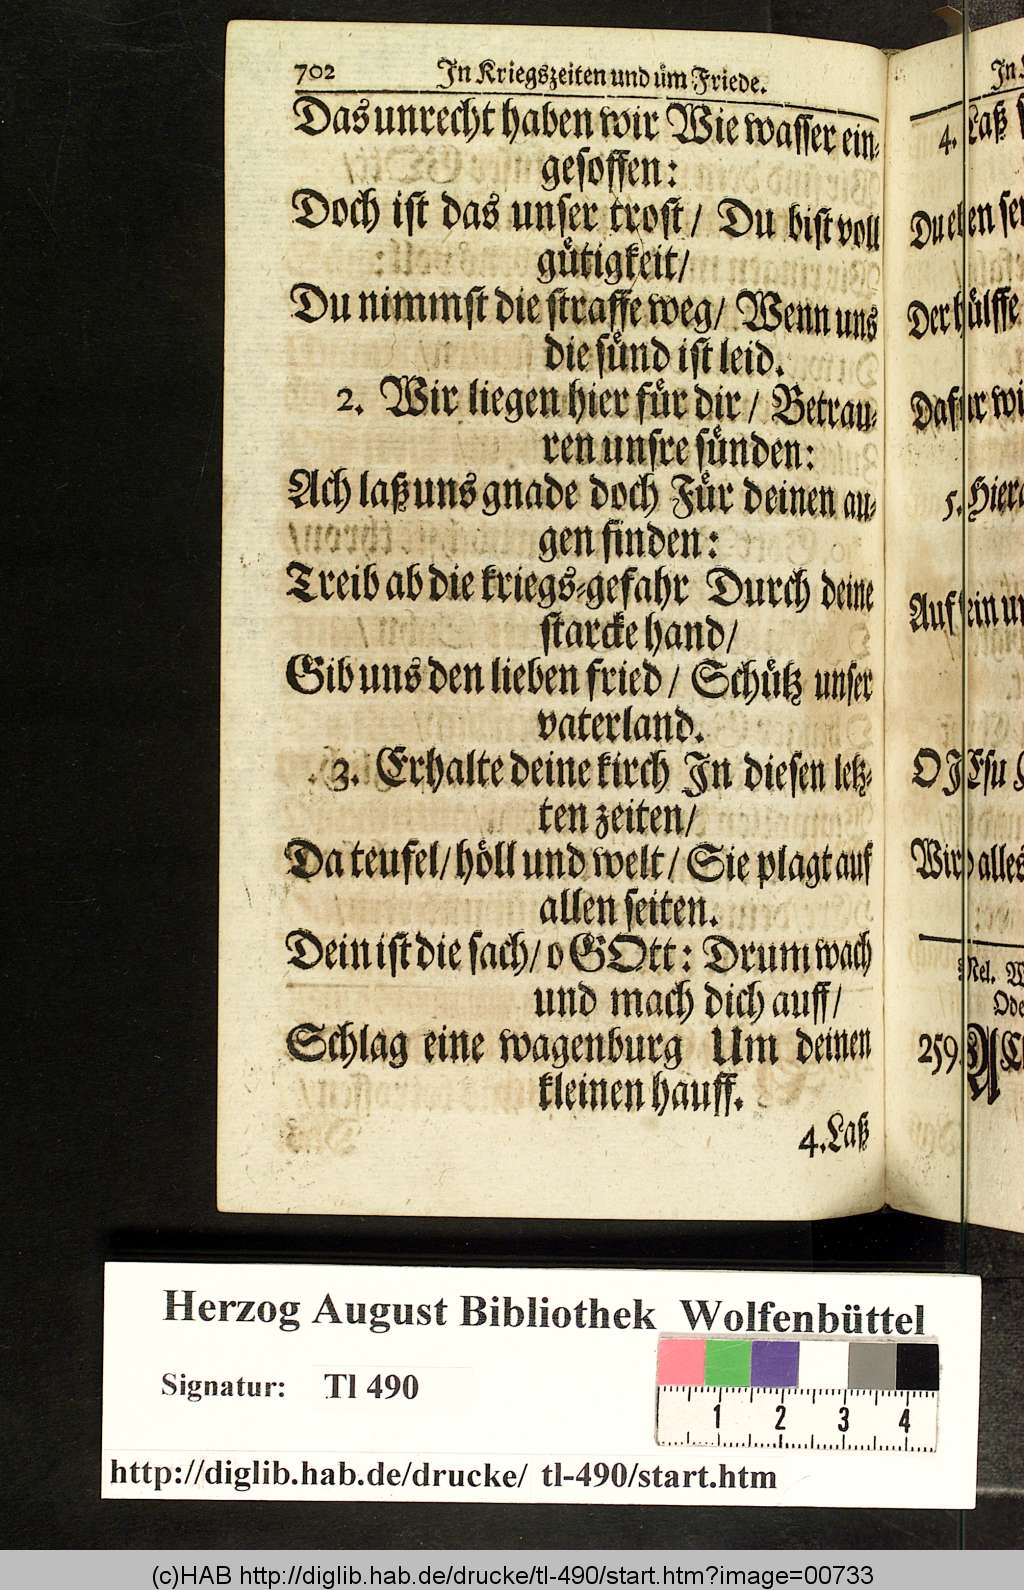 702 In Kriegszeiten und üm Friede.
Das unrecht haben wir Wie wasser ein-
gesoffen:
Doch ist das unser trost/ Du bist voll
gütigkeit/
Du nimmst die straffe weg/ Wenn uns
die sünd ist leid.
2. Wir liegen hier für dir/ Betrau-
ren unsre sünden:
Ach laß uns gnade doch Für deinen au-
gen finden:
Treib ab die kriegs-gefahr Durch deine
starcke hand/
Gib uns den lieben fried/ Schütz unser
vaterland.
3. Erhalte deine kirch In diesen letz-
ten zeiten/
Da teufel/ höll und welt/ Sie plagt auf
allen seiten.
Dein ist die sach/ o GOtt: Drum wach
und mach dich auff/
Schlag eine wagenburg Um deinen
kleinen hauff.
4. Laß
In
4. Laß
Du eben
Der hülffe
Dafür
5. Hier
Auf
O JEsu
Wird alles
Mel.
Ode
259.
Herzog August Bibliothek Wolfenbüttel
Signatur: Tl 490
1 2 3 4
http://diglib.hab.de/drucke/ tl-490/start.htm
(c)HAB http://diglib.hab.de/drucke/tl-490/start.htm?image=00733